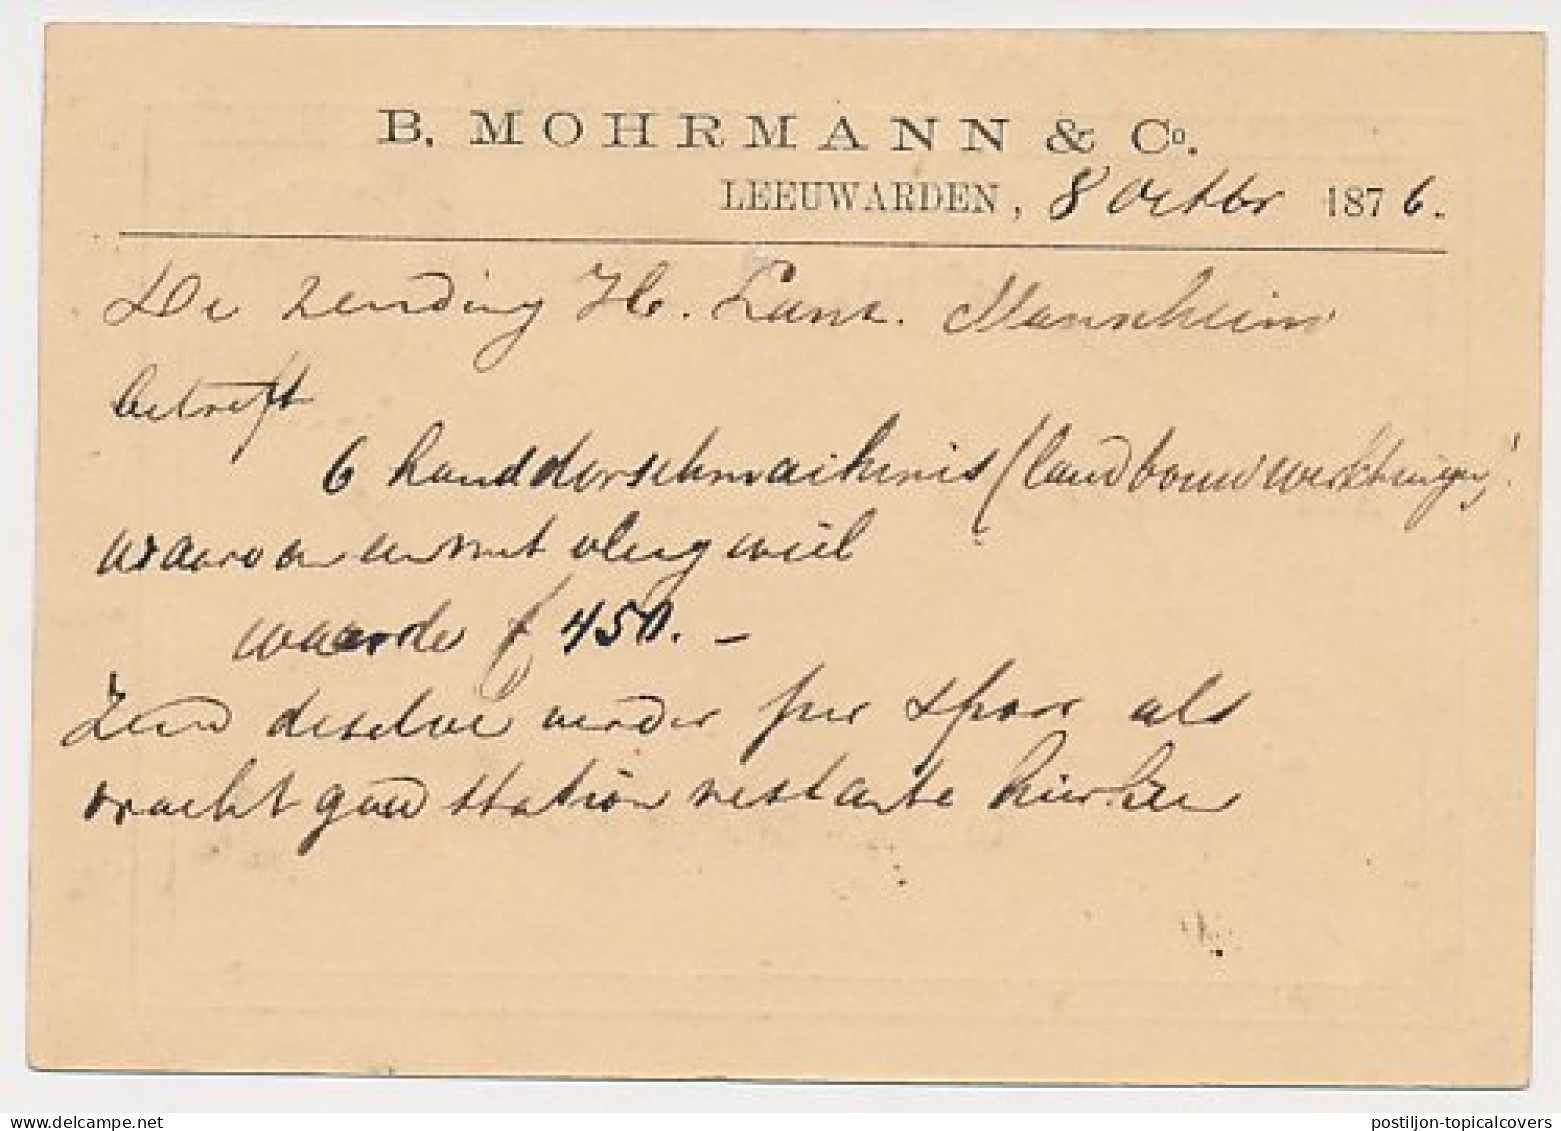 B. MOHRMANN & Co.
LEEUWARDEN, 8 Octbr 1876.
De zending H. Lanz. Mannheim
betreft
6 handdorschmachienes (landbouwwerktuigen)
waarvan een met vliegwiel
waarde f 450.–
Zend deselve verder per spoor als
vracht goed station restante hierheen
postiljon-topicalcovers